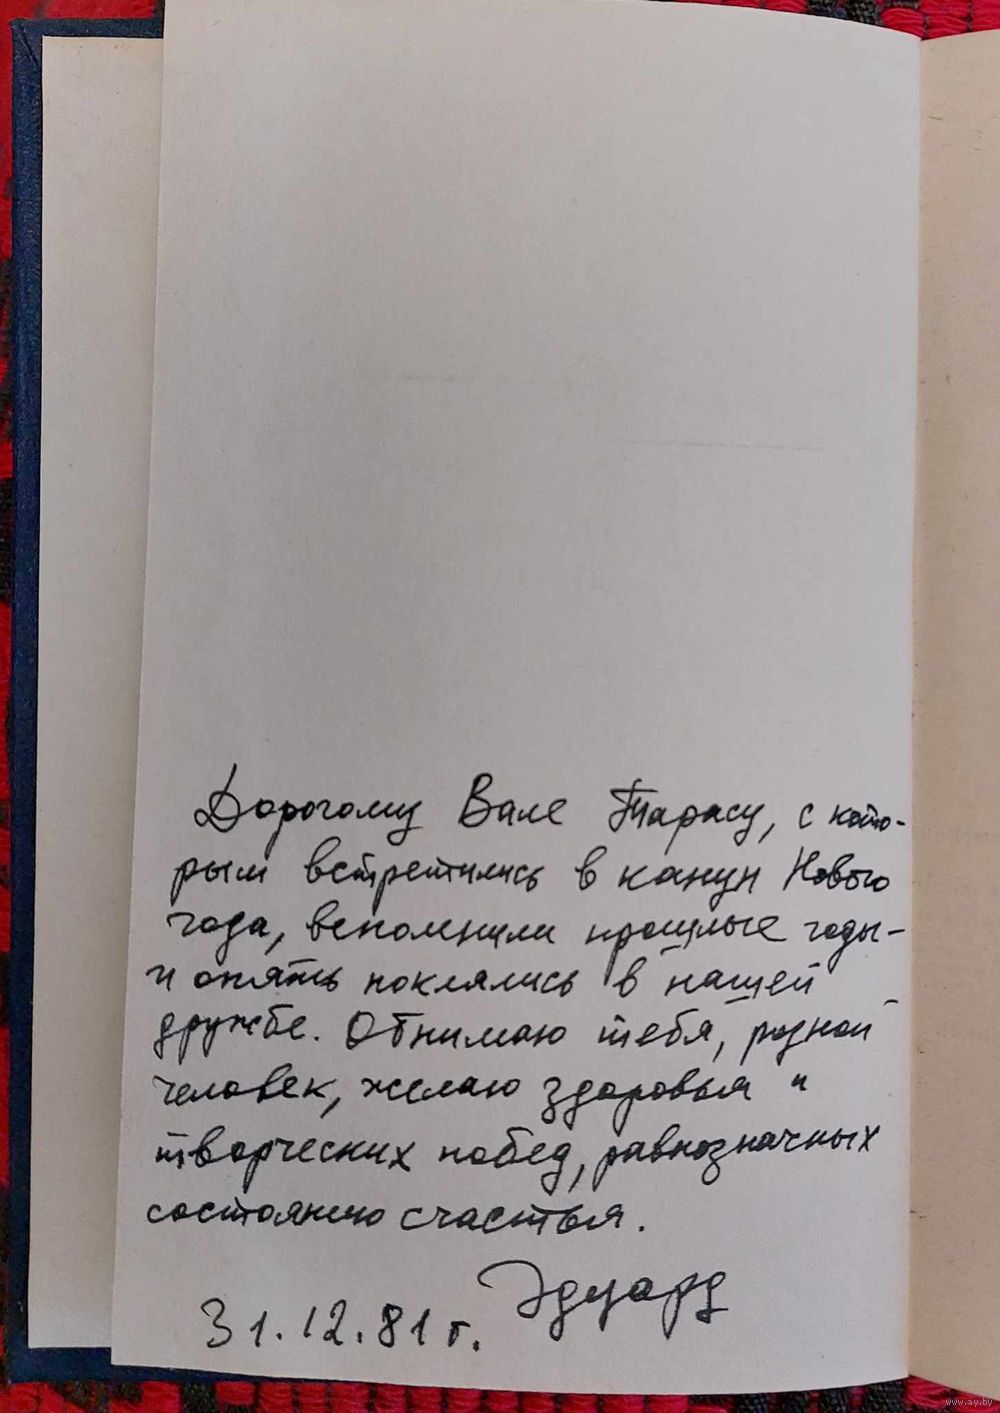 Дорогому Вале Тарасу, с кото-
рым встретились в канун Нового
года, вспомнили прошлые годы -
и опять поклялись в нашей
дружбе. Обнимаю тебя, родной
человек, желаю здоровья и
творческих побед, равнозначных
состоянию счастья.
Эдуард
31.12.81 г.
www.ay.by